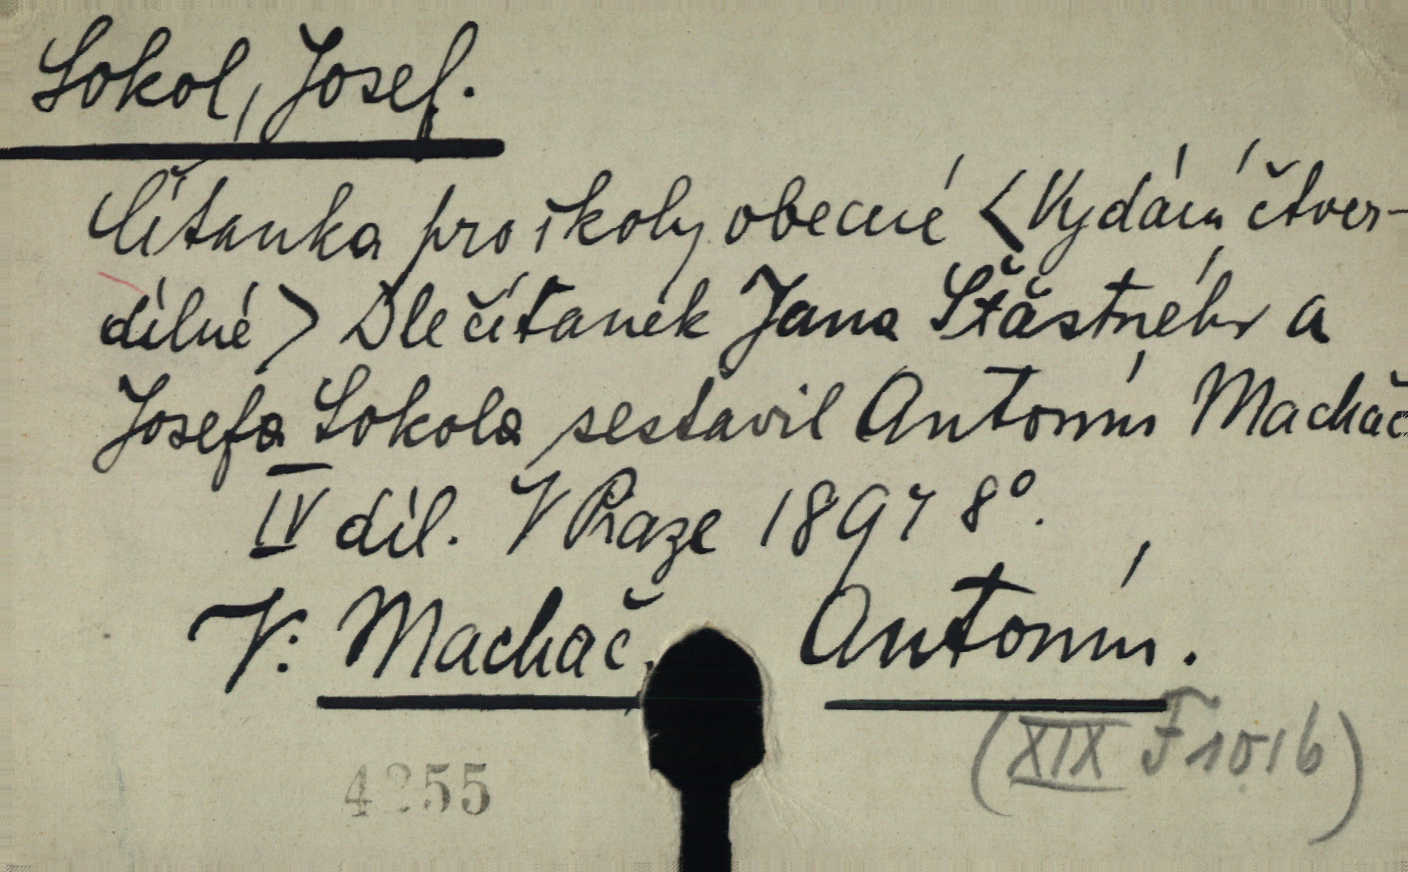 Sokol, Josef.
Čítanka pro školy obecné <Vydání čtver-
dílné> Dle čítanek Jana Šťastného a
Josefa Sokola sestavil Antonín Macháč
IV díl. V Praze 1897 8°.
V: Macháč, Antonín.
(XIX F 1016)
4255